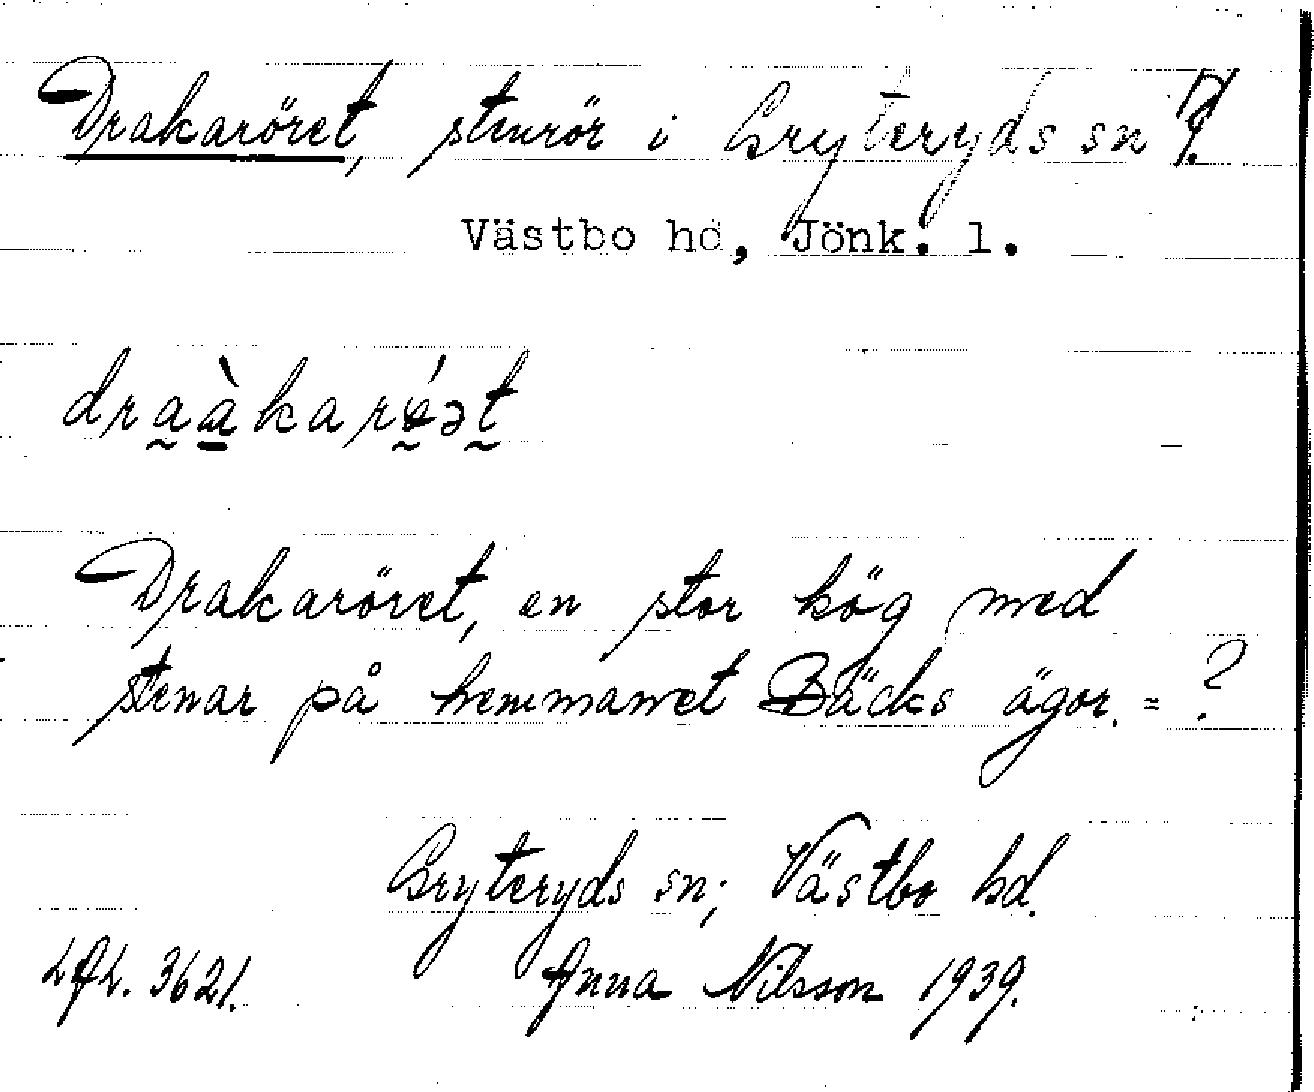 Drakaröret, stenrör i Gryteryds sn
Västbo hd, Jönk. l.
draàkarǿət
Drakaröret, en stor hög med
stenar på hemmanet Bäcks ägor. = ?
Gryteryds sn; Västbo hd.
3621. Anna Nilsson 1939.